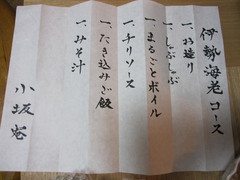 伊勢海老コース
一、お造り
一、しゃぶしゃぶ
一、まるごとボイル
一、チリソース
一、たき込みご飯
一、みそ汁
小坂庵